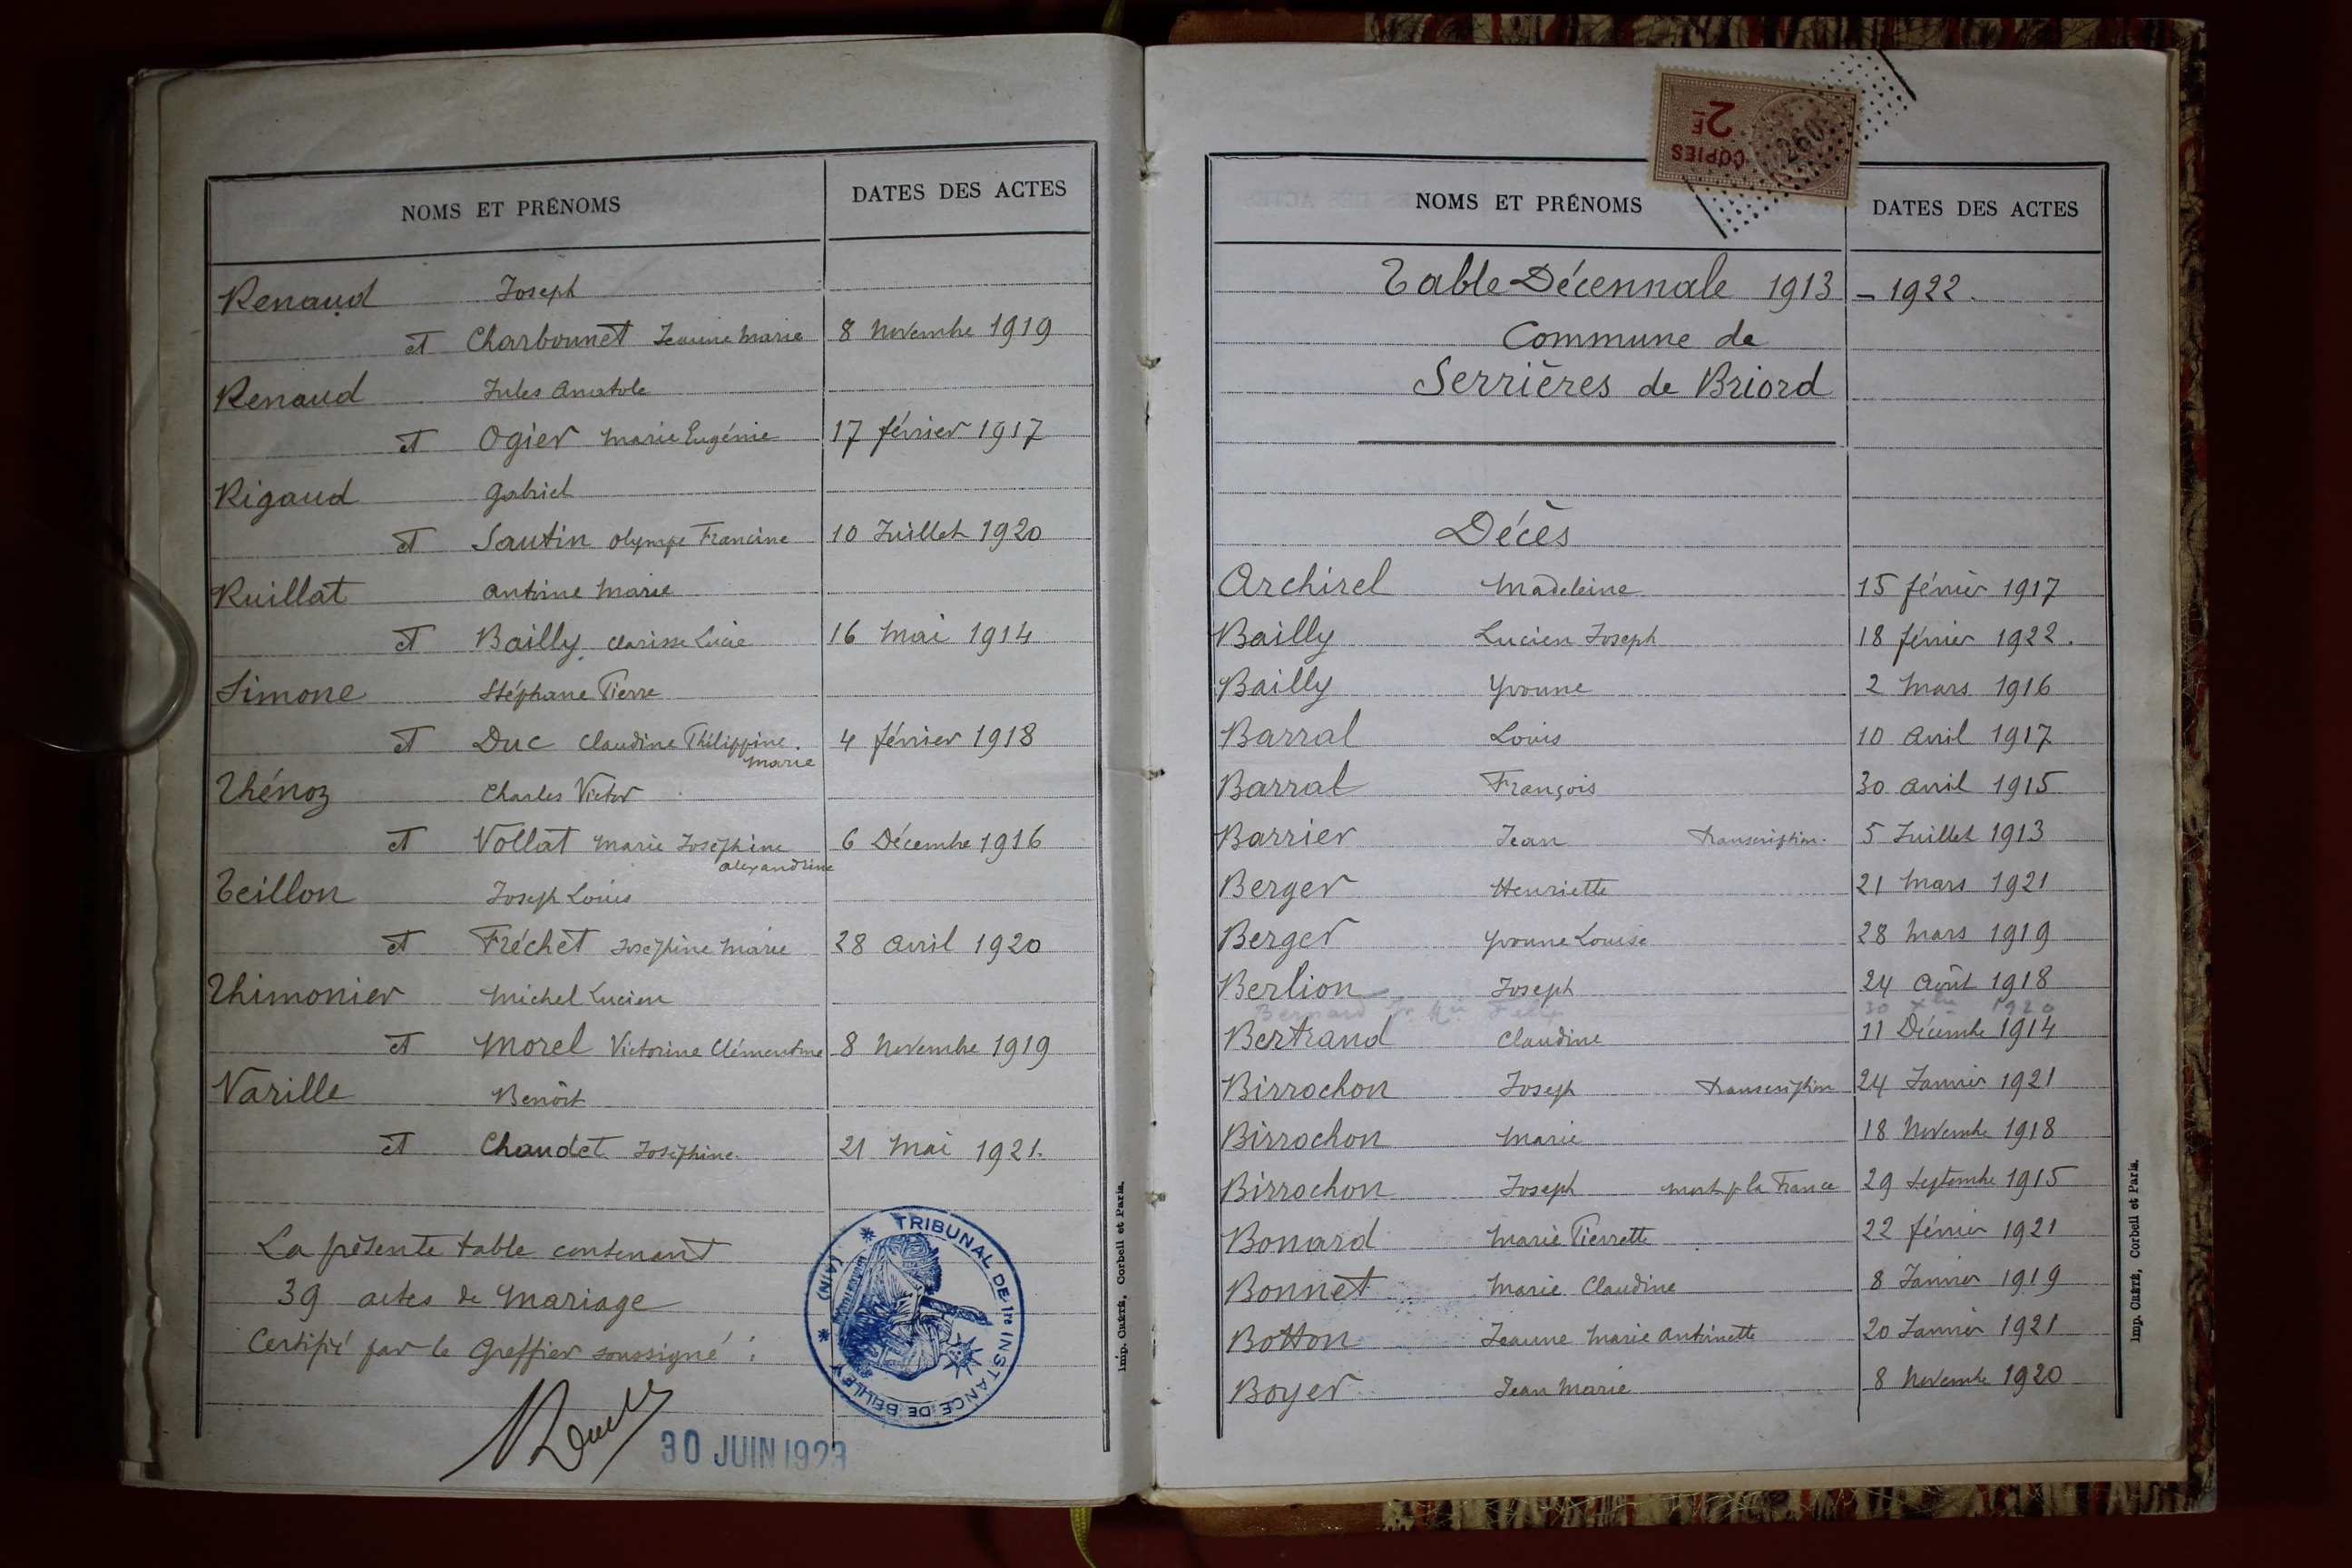 NOMS ET PRÉNOMS DATES DES ACTES
Renaud Joseph
et Charbonnet Jeanne Marie 8 Novembre 1919
Renaud Jules Anatole
et Ogier Marie Eugénie 17 février 1917
Rigaud Gabriel
et Sautin Olympe Francine 10 Juillet 1920
Ruillat Antoine Marie
et Bailly Clarisse Lucie 16 Mai 1914
Simone Stéphane Pierre
et Duc Claudine Philippine. 4 février 1918
Marie
Thénoz Charles Victor
et Vollat Marie Joséphine 6 Décembre 1916
Alexandrine
Teillon Joseph Louis
et Fréchet Joséphine Marie 28 Avril 1920
Thimonier Michel Lucien
et Morel Victorine Clémentine 8 Novembre 1919
Varille Benoît
et Chaudet Joséphine. 21 Mai 1921.
La présente table contenant
39 actes de Mariage
Certifié par le Greffier soussigné :
TRIBUNAL DE 1re INSTANCE DE BELLEY (AIN)
30 JUIN 1923
Imp. CRÉTÉ, Corbeil et Paris.
2F
COPIES
260
NOMS ET PRÉNOMS DATES DES ACTES
Table Décennale 1913 - 1922.
Commune de
Serrières de Briord
Décès
Archirel Madeleine 15 février 1917
Bailly Lucien Joseph 18 février 1922.
Bailly Yvonne 2 Mars 1916
Barral Louis 10 Avril 1917
Barral François 30 Avril 1915
Barrier Jean transcription. 5 Juillet 1913
Berger Henriette 21 Mars 1921
Berger Yvonne Louise 28 Mars 1919
Berlion Joseph 24 Août 1918
Bernard 30 Xbre 1920
Bertrand Claudine 11 Décembre 1914
Birrochon Joseph transcription 24 Janvier 1921
Birrochon Marie 18 Novembre 1918
Birrochon Joseph mort p la France 29 Septembre 1915
Bonard Marie Pierrette 22 février 1921
Bonnet Marie Claudine 8 Janvier 1919
Botton Jeanne Marie Antoinette 20 Janvier 1921
Boyer Jean Marie 8 Novembre 1920
Imp. CRÉTÉ, Corbeil et Paris.